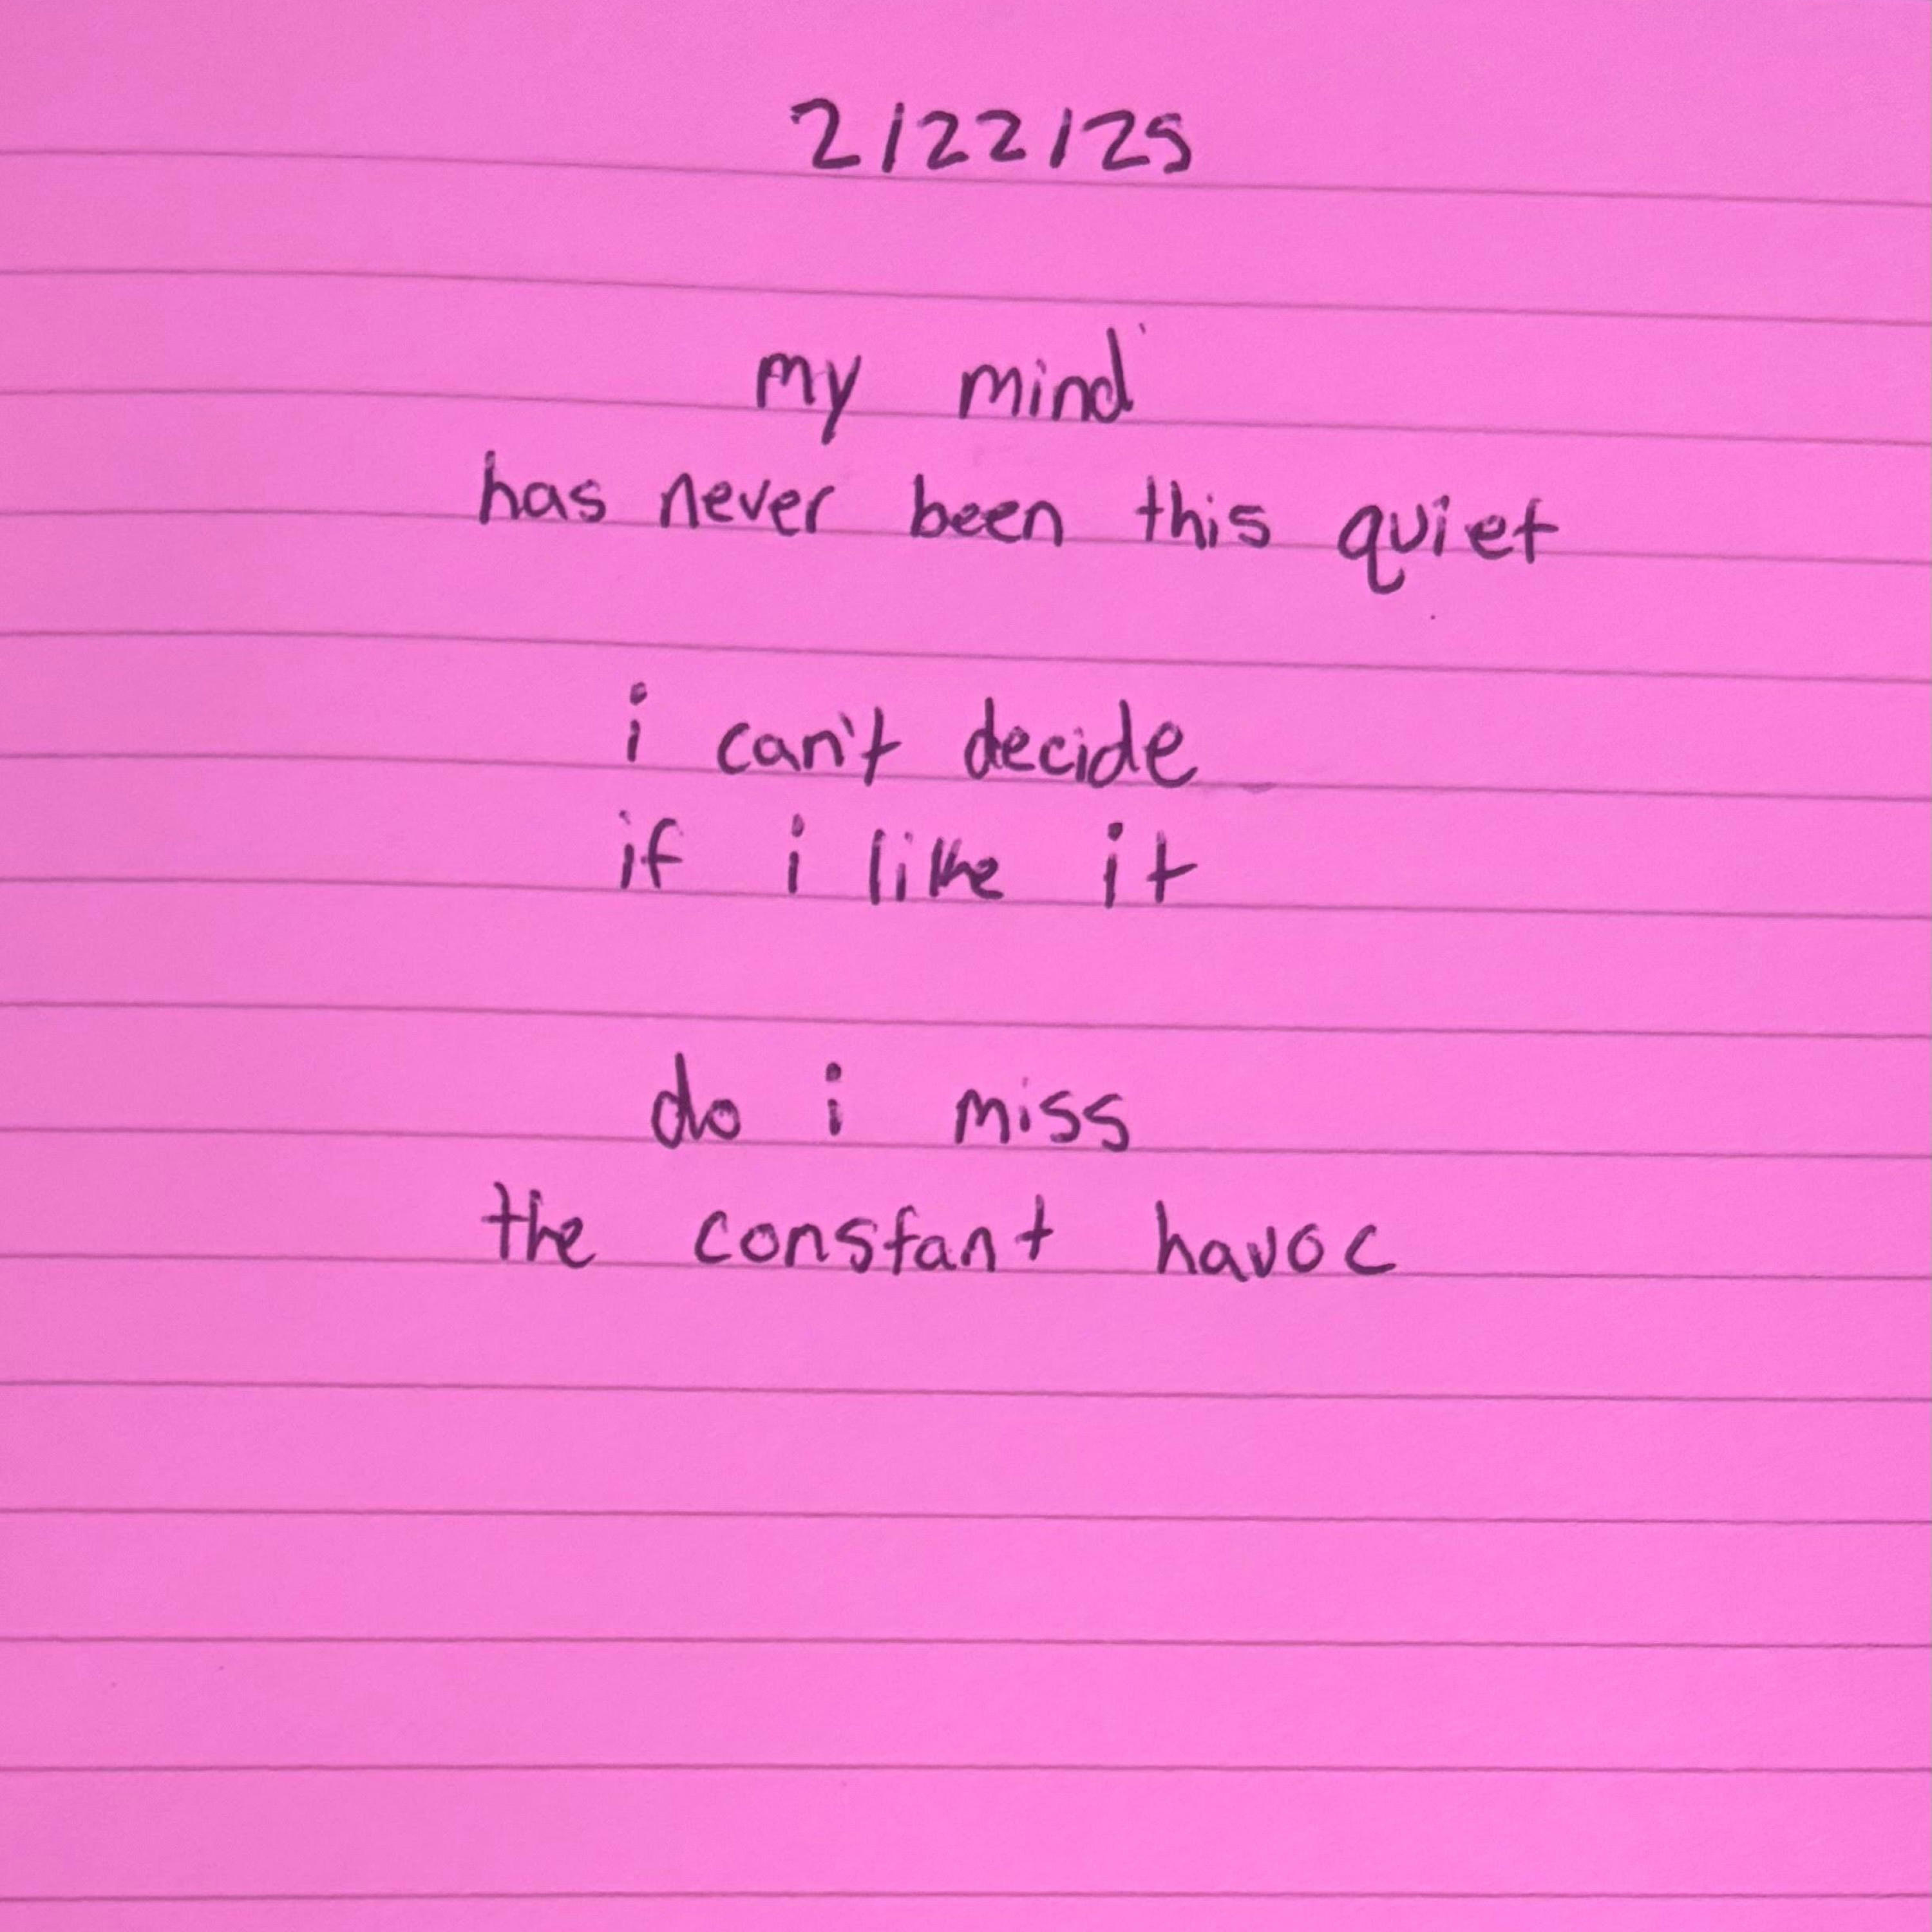 2/22/25
my mind
has never been this quiet
i can't decide
if i like it
do i miss
the constant havoc